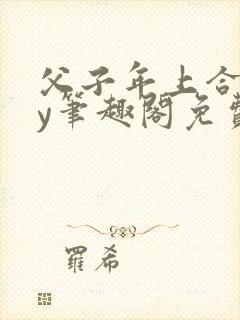 父子年上合
y筆趣閣免費
羅希